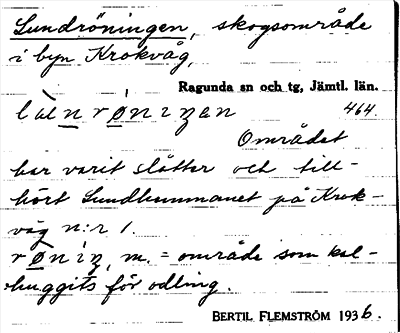 Sundröningen, skogsområde
i byn Krokvåg,
Ragunda sn och tg, Jämtl. län.
464.
Området
har varit slåtter och till-
hört Sundhemmanet på Krok-
våg n:r 1.
m. = område som kal-
huggits för odling.
BERTIL FLEMSTRÖM 1936.